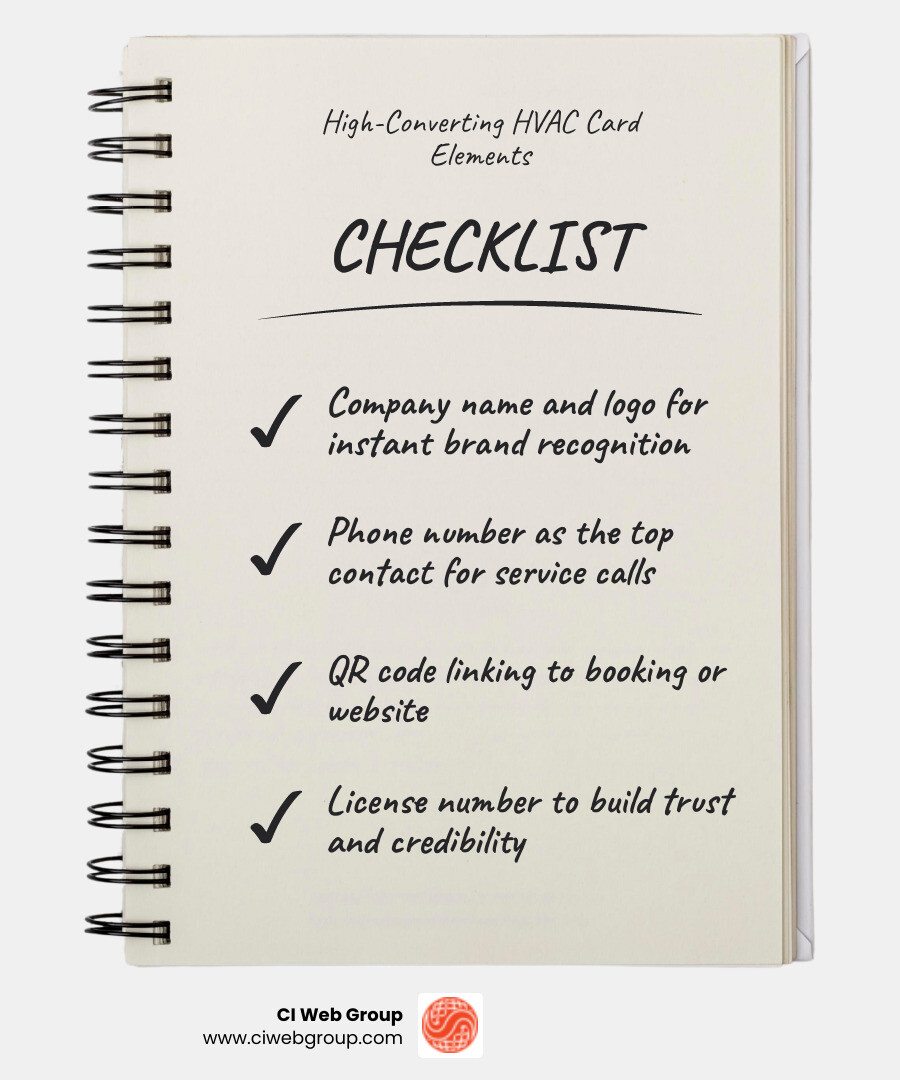 High-Converting HVAC Card
Elements
CHECKLIST
Company name and logo for
instant brand recognition
Phone number as the top
contact for service calls
QR code linking to booking or
website
License number to build trust
and credibility
CI Web Group
www.ciwebgroup.com